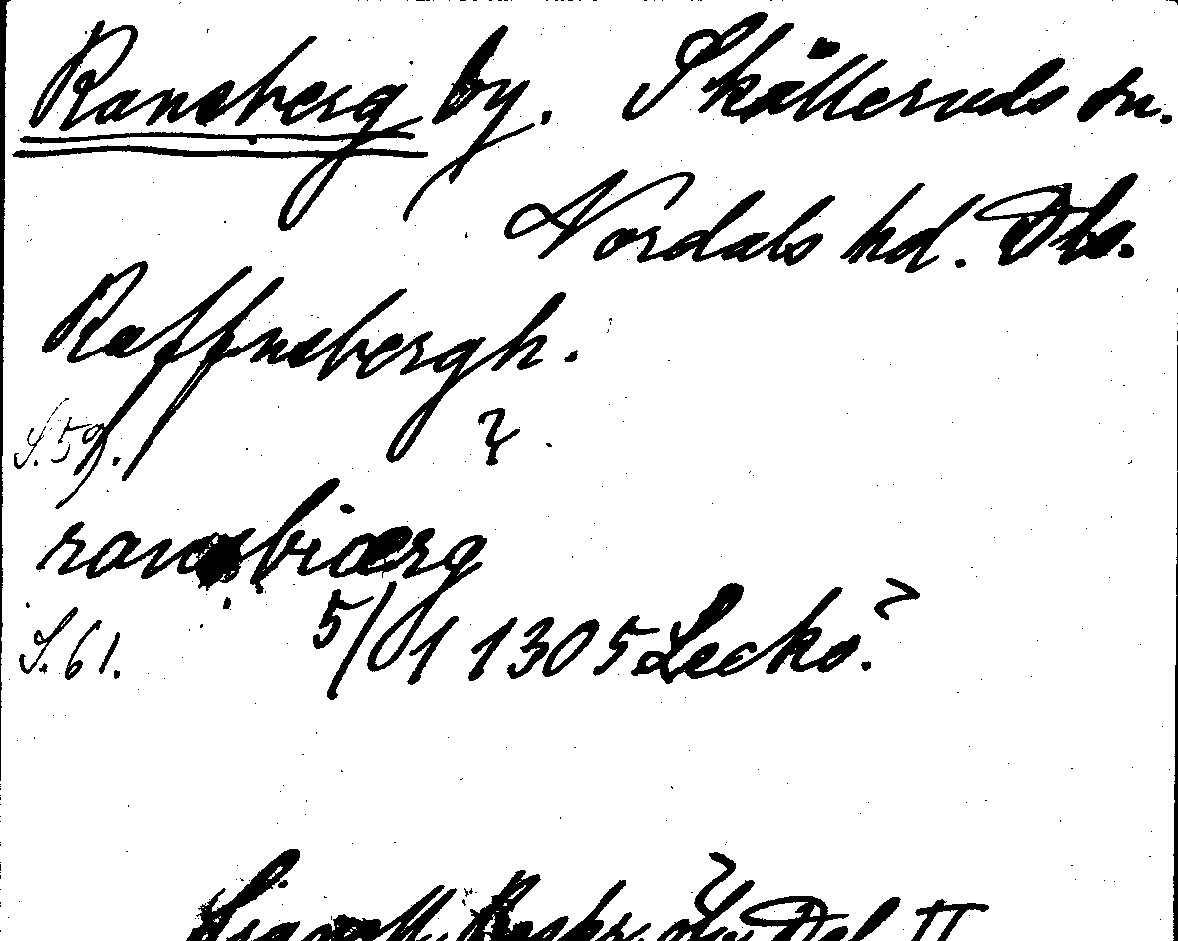 Ransberg by. Skålleruds sn.
Nordals hd. Dls.
Raffnsbergh.
S. 59. ?
ransbiærg
S. 61. 5/01 1305 Leckö?
Del II